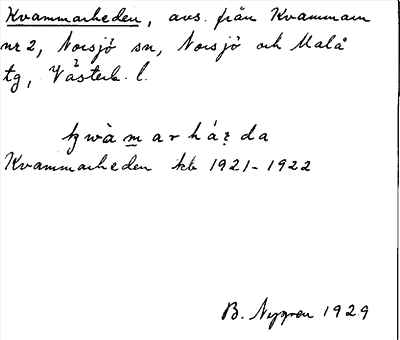 Kvammarheden, avs. från Kvammarn
nr 2, Norsjö sn, Norsjö och Malå
tg, Västerb. l.
kwàmarháɂda
Kvammarheden kb 1921-1922
B. Nygren 1929